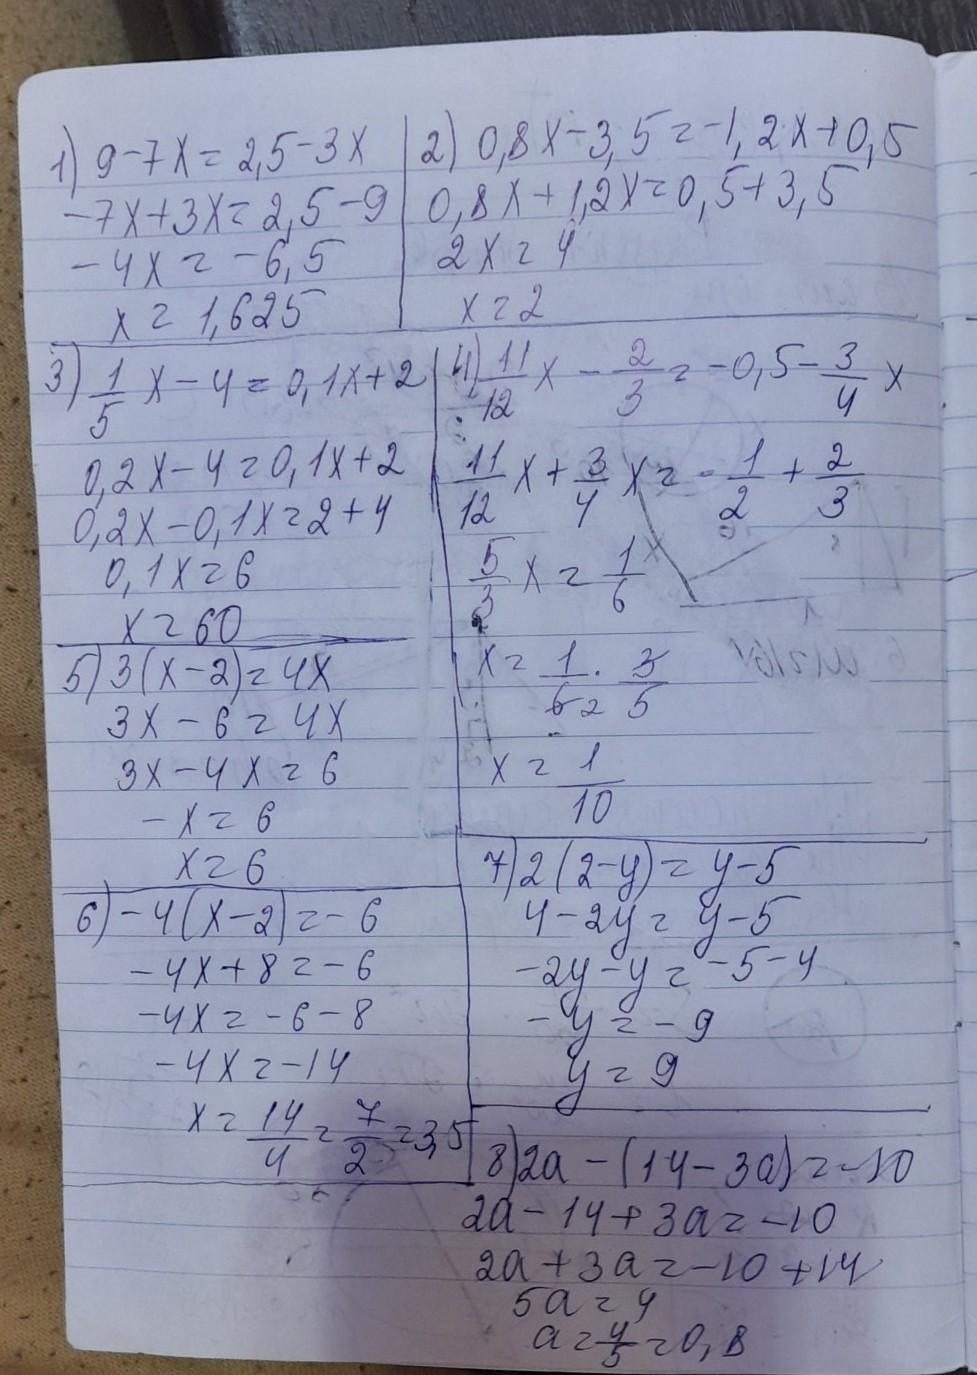 1) 9-7x=2,5-3x
-7x+3x=2,5-9
-4x=-6,5
x=1,625
2) 0,8x-3,5=-1,2x+0,5
0,8x+1,2x=0,5+3,5
2x=4
x=2
3) 1/5 x-4=0,1x+2
0,2x-4=0,1x+2
0,2x-0,1x=2+4
0,1x=6
x=60
4) 11/12 x - 2/3 = -0,5 - 3/4 x
11/12 x + 3/4 x = - 1/2 + 2/3
5/3 x = 1/6
x = 1/6 2 · 3/5
x = 1/10
5) 3(x-2)=4x
3x-6=4x
3x-4x=6
-x=6
x=6
6) -4(x-2)=-6
-4x+8=-6
-4x=-6-8
-4x=-14
x= 14/4 = 7/2 =3,5
7) 2(2-y)=y-5
4-2y=y-5
-2y-y=-5-4
-y=-9
y=9
8) 2a-(14-3a)=-10
2a-14+3a=-10
2a+3a=-10+14
5a=4
a= 4/5 =0,8